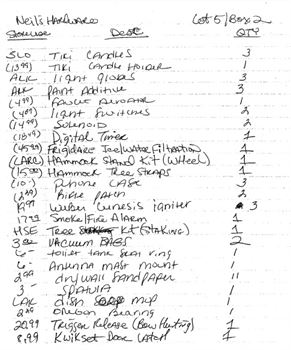 Neil's Hardware Lot 5/Box 2
Storage Desc. QTY
SLO Tiki Candles 3
(13.99) Tiki Candle Holder 1
light globes 3
Paint Additive 3
(4.99) Faucet Aerator 1
light switches 2
Solenoid 2
(18.49) Digital Timer 1
(45.99) Frigidaire Ice/water Filtration 1
(LARG) Hammock Stand Kit (Wheel) 1
(15.00) Hammock Tree Straps 1
(10.-) Phone Case 3
Bike Patch 2
Weber Genesis igniter 3
17.99 Smoke/Fire Alarm 1
HSE Tree Kit (Staking) 1
3.00 Vacuum Bags 2
6- toilet tank seal ring 1
6- Antenna mast mount 1
2.99 drywall sandpaper 11
3- Spatula 1
dish mop 1
Oregon Bearing 1
20.99 Trigger Release (Bow Hunting) 1
8.99 Kwikset Door Latch 1